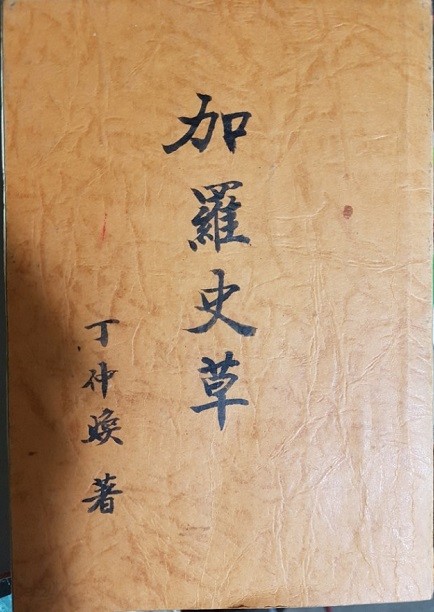 加羅史草
丁仲煥 著